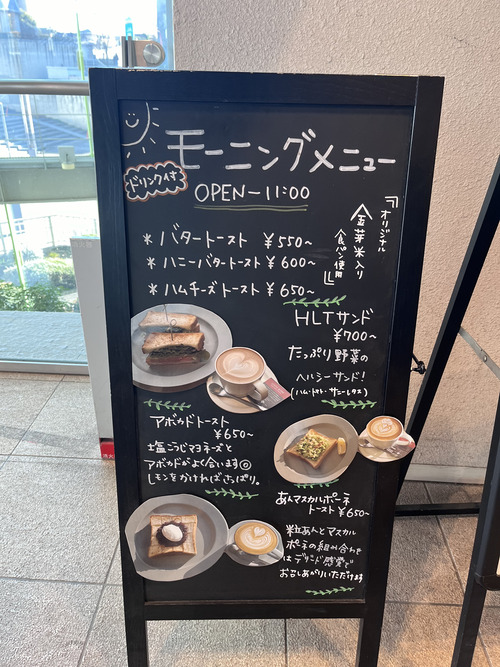 モーニングメニュー
ドリンク付
OPEN－11:00
『オリジナル
金芽米入り
食パン使用』
* バタートースト ¥550〜
* ハニーバタートースト ¥600〜
* ハムチーズトースト ¥650〜
HLTサンド
¥700〜
たっぷり野菜の
ヘルシーサンド!
(ハム・トマト・サニーレタス)
アボカドトースト
¥650〜
塩こうじマヨネーズと
アボカドがよく合います◎
レモンをかければさっぱり。
あんマスカルポーネ
トースト ¥650〜
粒あんとマスカル
ポーネの組み合わせ
は デザート感覚で
お召しあがりいただけます